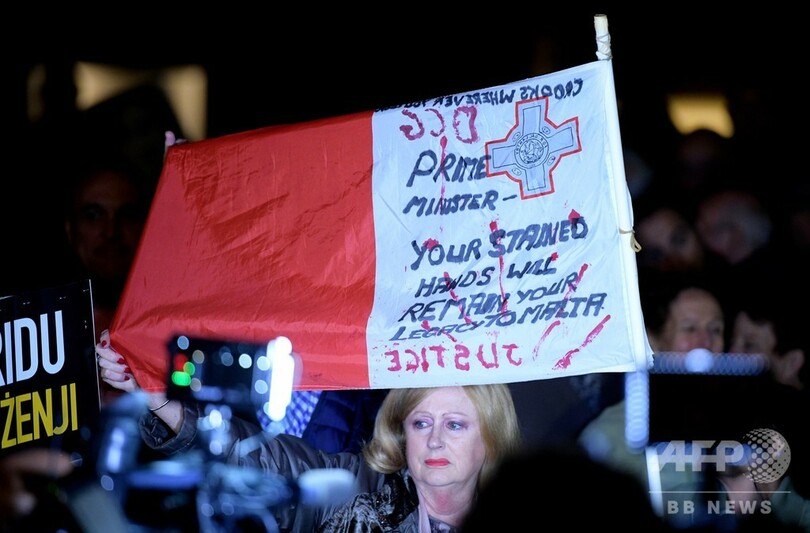 CROOKS WHEREVER
DCG
PRIME
MINISTER -
YOUR STAINED
HANDS WILL
REMAIN YOUR
LEGACY TO MALTA
JUSTICE
RIDU
ŻENJI
AFP
BB NEWS